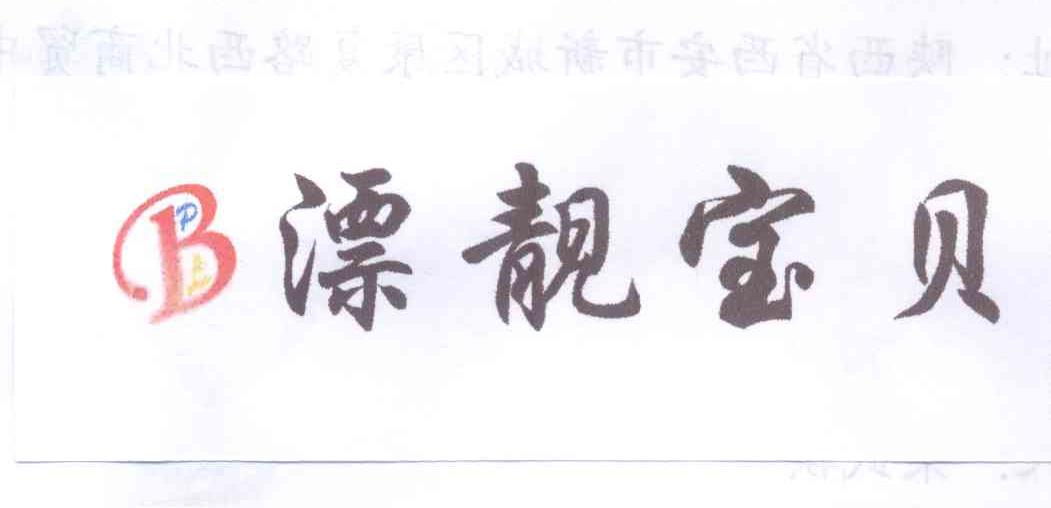 址:陕西省西安市新城区康复路西北商贸中
B P 漂靓宝贝